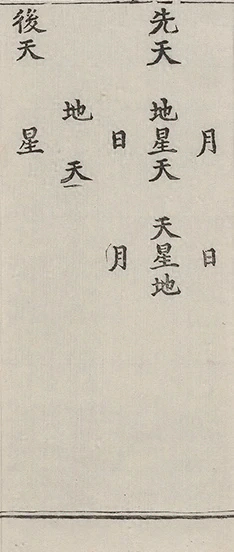 月 日
先天 地星天 天星地
日 月
地 天
後天 星